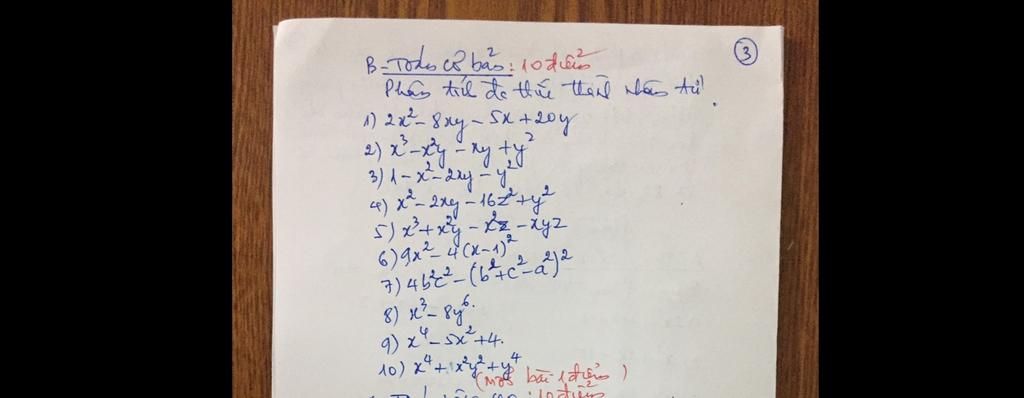 ③
B-Toán cơ bản: 10 điểm
Phân tích đa thức thành nhân tử.
1) 2x² - 8xy - 5x + 20y
2) x³ - x²y - xy + y²
3) 1 - x² - 2xy - y²
4) x² - 2xy - 16z² + y²
5) x³ + x²y - x²z - xyz
6) 9x² - 4(x-1)²
7) 4b²c² - (b² + c² - a²)²
8) x³ - 8y⁶.
9) x⁴ - 5x² + 4.
10) x⁴ + x²y² + y⁴
(mỗi bài 1 điểm)
: 10 điểm